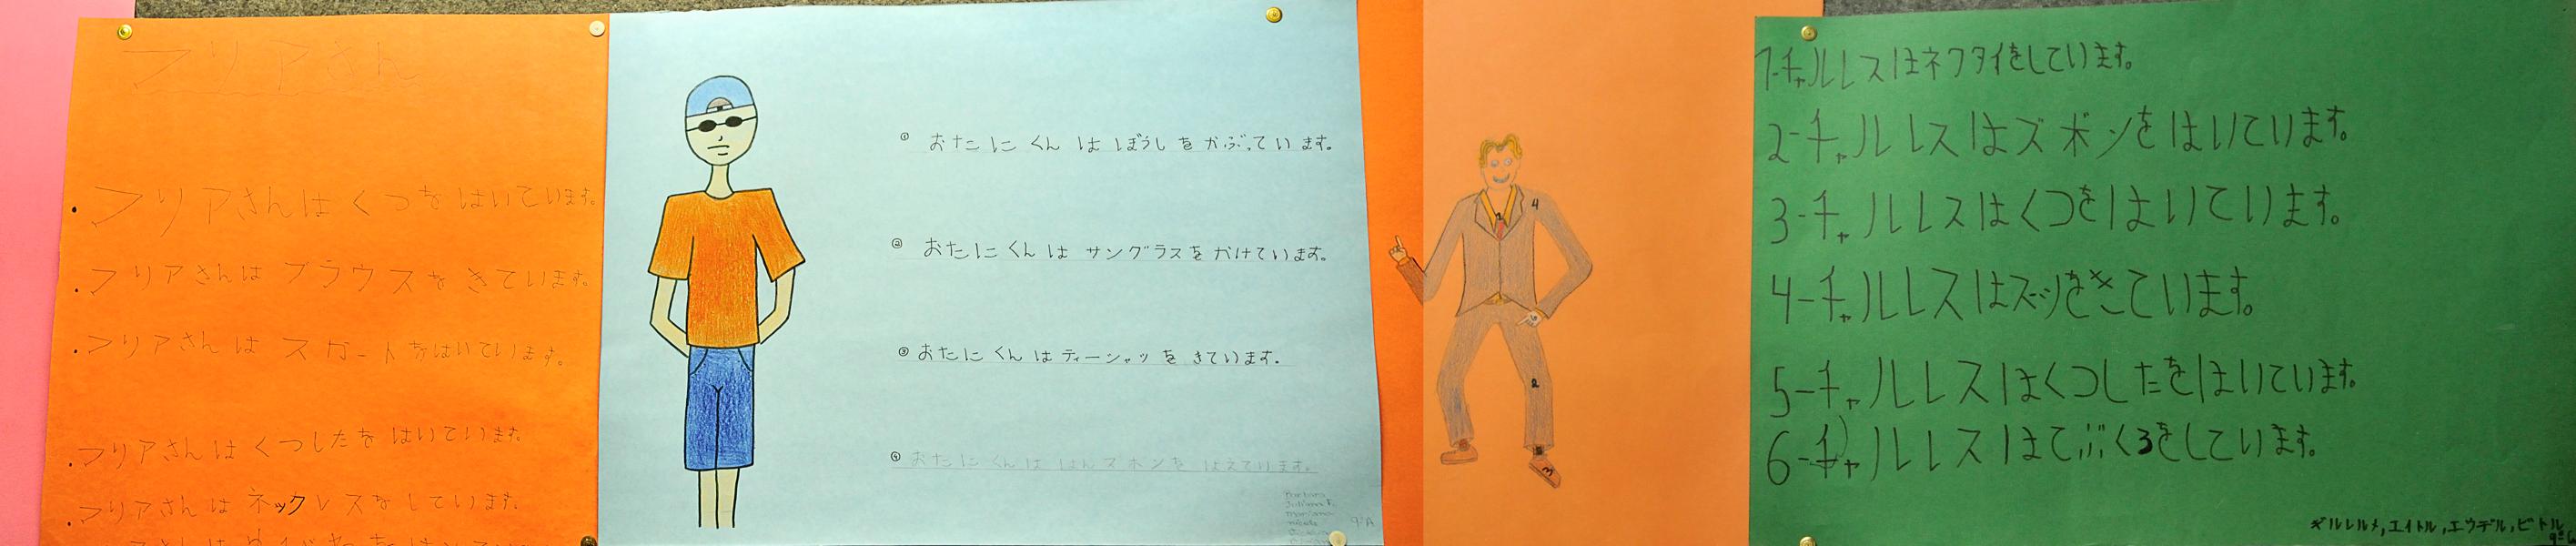 フリアさん
フリアさんはくつをはいています。
フリアさんはブラウスをきています。
フリアさんはスカートをはいています。
フリアさんはくつしたをはいています。
フリアさんはネックレスをしています。
① おたにくんはぼうしをかぶっています。
② おたにくんはサングラスをかけています。
③ おたにくんはティーシャツをきています。
④ おたにくんははんズボンをはえています。
Barbara
Juliana F.
Mariana
Nicole
9ºA
4
2
3
1-チャルレスはネクタイをしています。
2-チャルレスはズボンをはいています。
3-チャルレスはくつをはいています。
4-チャルレスはスーツをきています。
5-チャルレスはくつしたをはいています。
6-チャルレスはてぶくろをしています。
ギルレルメ,エイトル,エウデル,ビトル